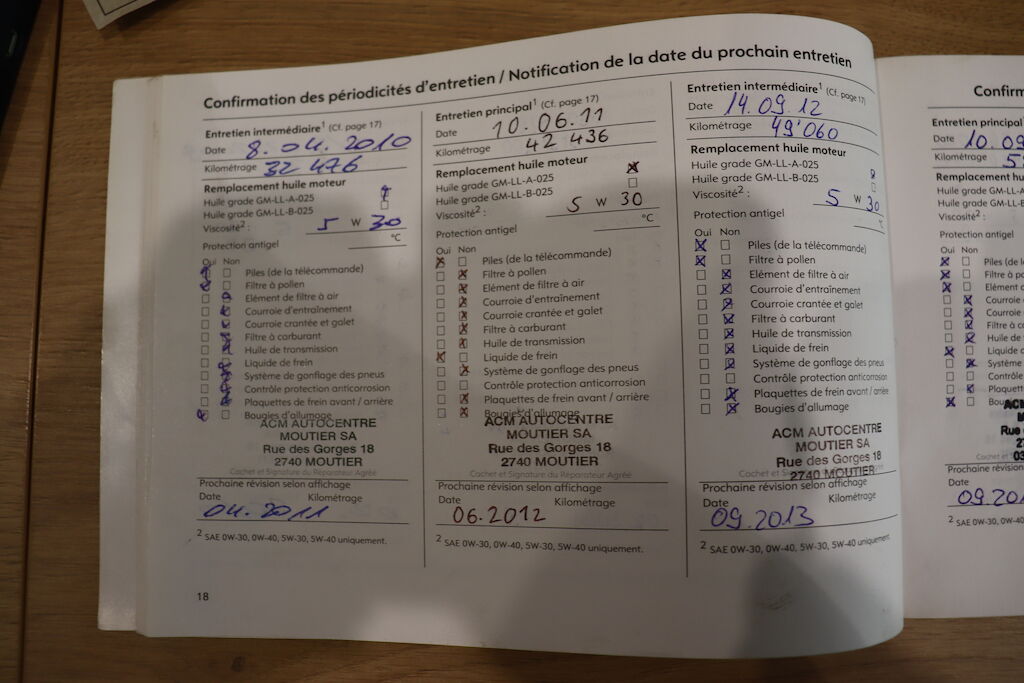 Confirmation des périodicités d'entretien / Notification de la date du prochain entretien
Entretien intermédiaire¹ (Cf. page 17)
Date 8.04.2010
Kilométrage 32 476
Remplacement huile moteur
Huile grade GM-LL-A-025
Huile grade GM-LL-B-025
Viscosité² : 5 W 30
Protection antigel °C
Oui Non
Piles (de la télécommande)
Filtre à pollen
Elément de filtre à air
Courroie d'entraînement
Courroie crantée et galet
Filtre à carburant
Huile de transmission
Liquide de frein
Système de gonflage des pneus
Contrôle protection anticorrosion
Plaquettes de frein avant / arrière
Bougies d'allumage
ACM AUTOCENTRE
MOUTIER SA
Rue des Gorges 18
2740 MOUTIER
Cachet et Signature du Réparateur Agréé
Prochaine révision selon affichage
Date Kilométrage
04.2011
² SAE 0W-30, 0W-40, 5W-30, 5W-40 uniquement.
18
Entretien principal¹ (Cf. page 17)
Date 10.06.11
Kilométrage 42 436
Remplacement huile moteur
Huile grade GM-LL-A-025
Huile grade GM-LL-B-025
Viscosité² : 5 W 30
Protection antigel °C
Oui Non
Piles (de la télécommande)
Filtre à pollen
Elément de filtre à air
Courroie d'entraînement
Courroie crantée et galet
Filtre à carburant
Huile de transmission
Liquide de frein
Système de gonflage des pneus
Contrôle protection anticorrosion
Plaquettes de frein avant / arrière
Bougies d'allumage
ACM AUTOCENTRE
MOUTIER SA
Rue des Gorges 18
2740 MOUTIER
Cachet et Signature du Réparateur Agréé
Prochaine révision selon affichage
Date Kilométrage
06.2012
² SAE 0W-30, 0W-40, 5W-30, 5W-40 uniquement.
Entretien intermédiaire¹ (Cf. page 17)
Date 14.09.12
Kilométrage 49'060
Remplacement huile moteur
Huile grade GM-LL-A-025
Huile grade GM-LL-B-025
Viscosité² : 5 W 30
Protection antigel °C
Oui Non
Piles (de la télécommande)
Filtre à pollen
Elément de filtre à air
Courroie d'entraînement
Courroie crantée et galet
Filtre à carburant
Huile de transmission
Liquide de frein
Système de gonflage des pneus
Contrôle protection anticorrosion
Plaquettes de frein avant / arrière
Bougies d'allumage
ACM AUTOCENTRE
MOUTIER SA
Rue des Gorges 18
2740 MOUTIER
Cachet et Signature du Réparateur Agréé
Prochaine révision selon affichage
Date Kilométrage
09.2013
² SAE 0W-30, 0W-40, 5W-30, 5W-40 uniquement.
Confirm
Entretien principal
Date 10.09
Kilométrage 5
Remplacement hu
Huile grade GM-LL-A
Huile grade GM-LL-B
Viscosité² :
Protection antigel
Oui Non
Piles (de la
Filtre à po
Elément d
Courroie
Courroie c
Filtre à ca
Huile de t
Liquide d
Système
Contrôle
Plaquett
Boug
ACM
M
Rue
2
03
Prochaine révision
Date
09.201
² SAE 0W-30, 0W-40